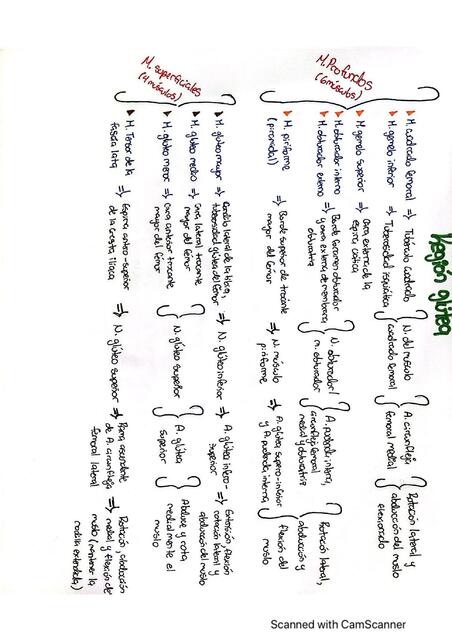 Región glútea
M. Profundos
(6 músculos)
M. cuadrado femoral ⇒ Tubérculo cuadrado
M. gemelo inferior ⇒ Tuberosidad isquiática
N. del músculo
cuadrado femoral
A. circunfleja
femoral medial
Rotación lateral y
abducción del muslo
M. gemelo superior ⇒ Cara externa de la
espina ciática
M. obturador interno
M. obturador externo
⇒ Borde foramen obturador
y cara externa de membrana
obturatriz
N. obturador/
m. obturador
A. pudenda interna,
circunfleja femoral
medial y obturatriz
M. piriforme
(piramidal)
⇒ Borde superior de trocante
mayor del fémur
⇒ N. músculo
piriforme
⇒ A. glútea supero-inferior
y A. pudenda interna
Rotación lateral,
abducción y
flexión del
muslo
M. superficiales
(4 músculos)
M. glúteo mayor ⇒ Cóndilo lateral de la tibia,
tuberosidad glútea del fémur
⇒ N. glúteo inferior
⇒ A. glútea infero-
superior
⇒ Extensión, flexión
rotación lateral y
abducción del muslo
M. glúteo medio ⇒ Cara lateral trocante
mayor del fémur
M. glúteo menor ⇒ Cara anterior trocante
mayor del fémur
N. glúteo superior
A. glútea
superior
Abduce y rota
medialmente el
muslo
M. Tensor de la
fascia lata
⇒ Espina antero-superior
de la cresta ilíaca
⇒ N. glúteo superior
⇒ Rama ascendente
de A. circunfleja
femoral lateral
⇒ Rotación, abducción
medial y flexión de
muslo (mantener la
rodilla extendida)
Scanned with CamScanner